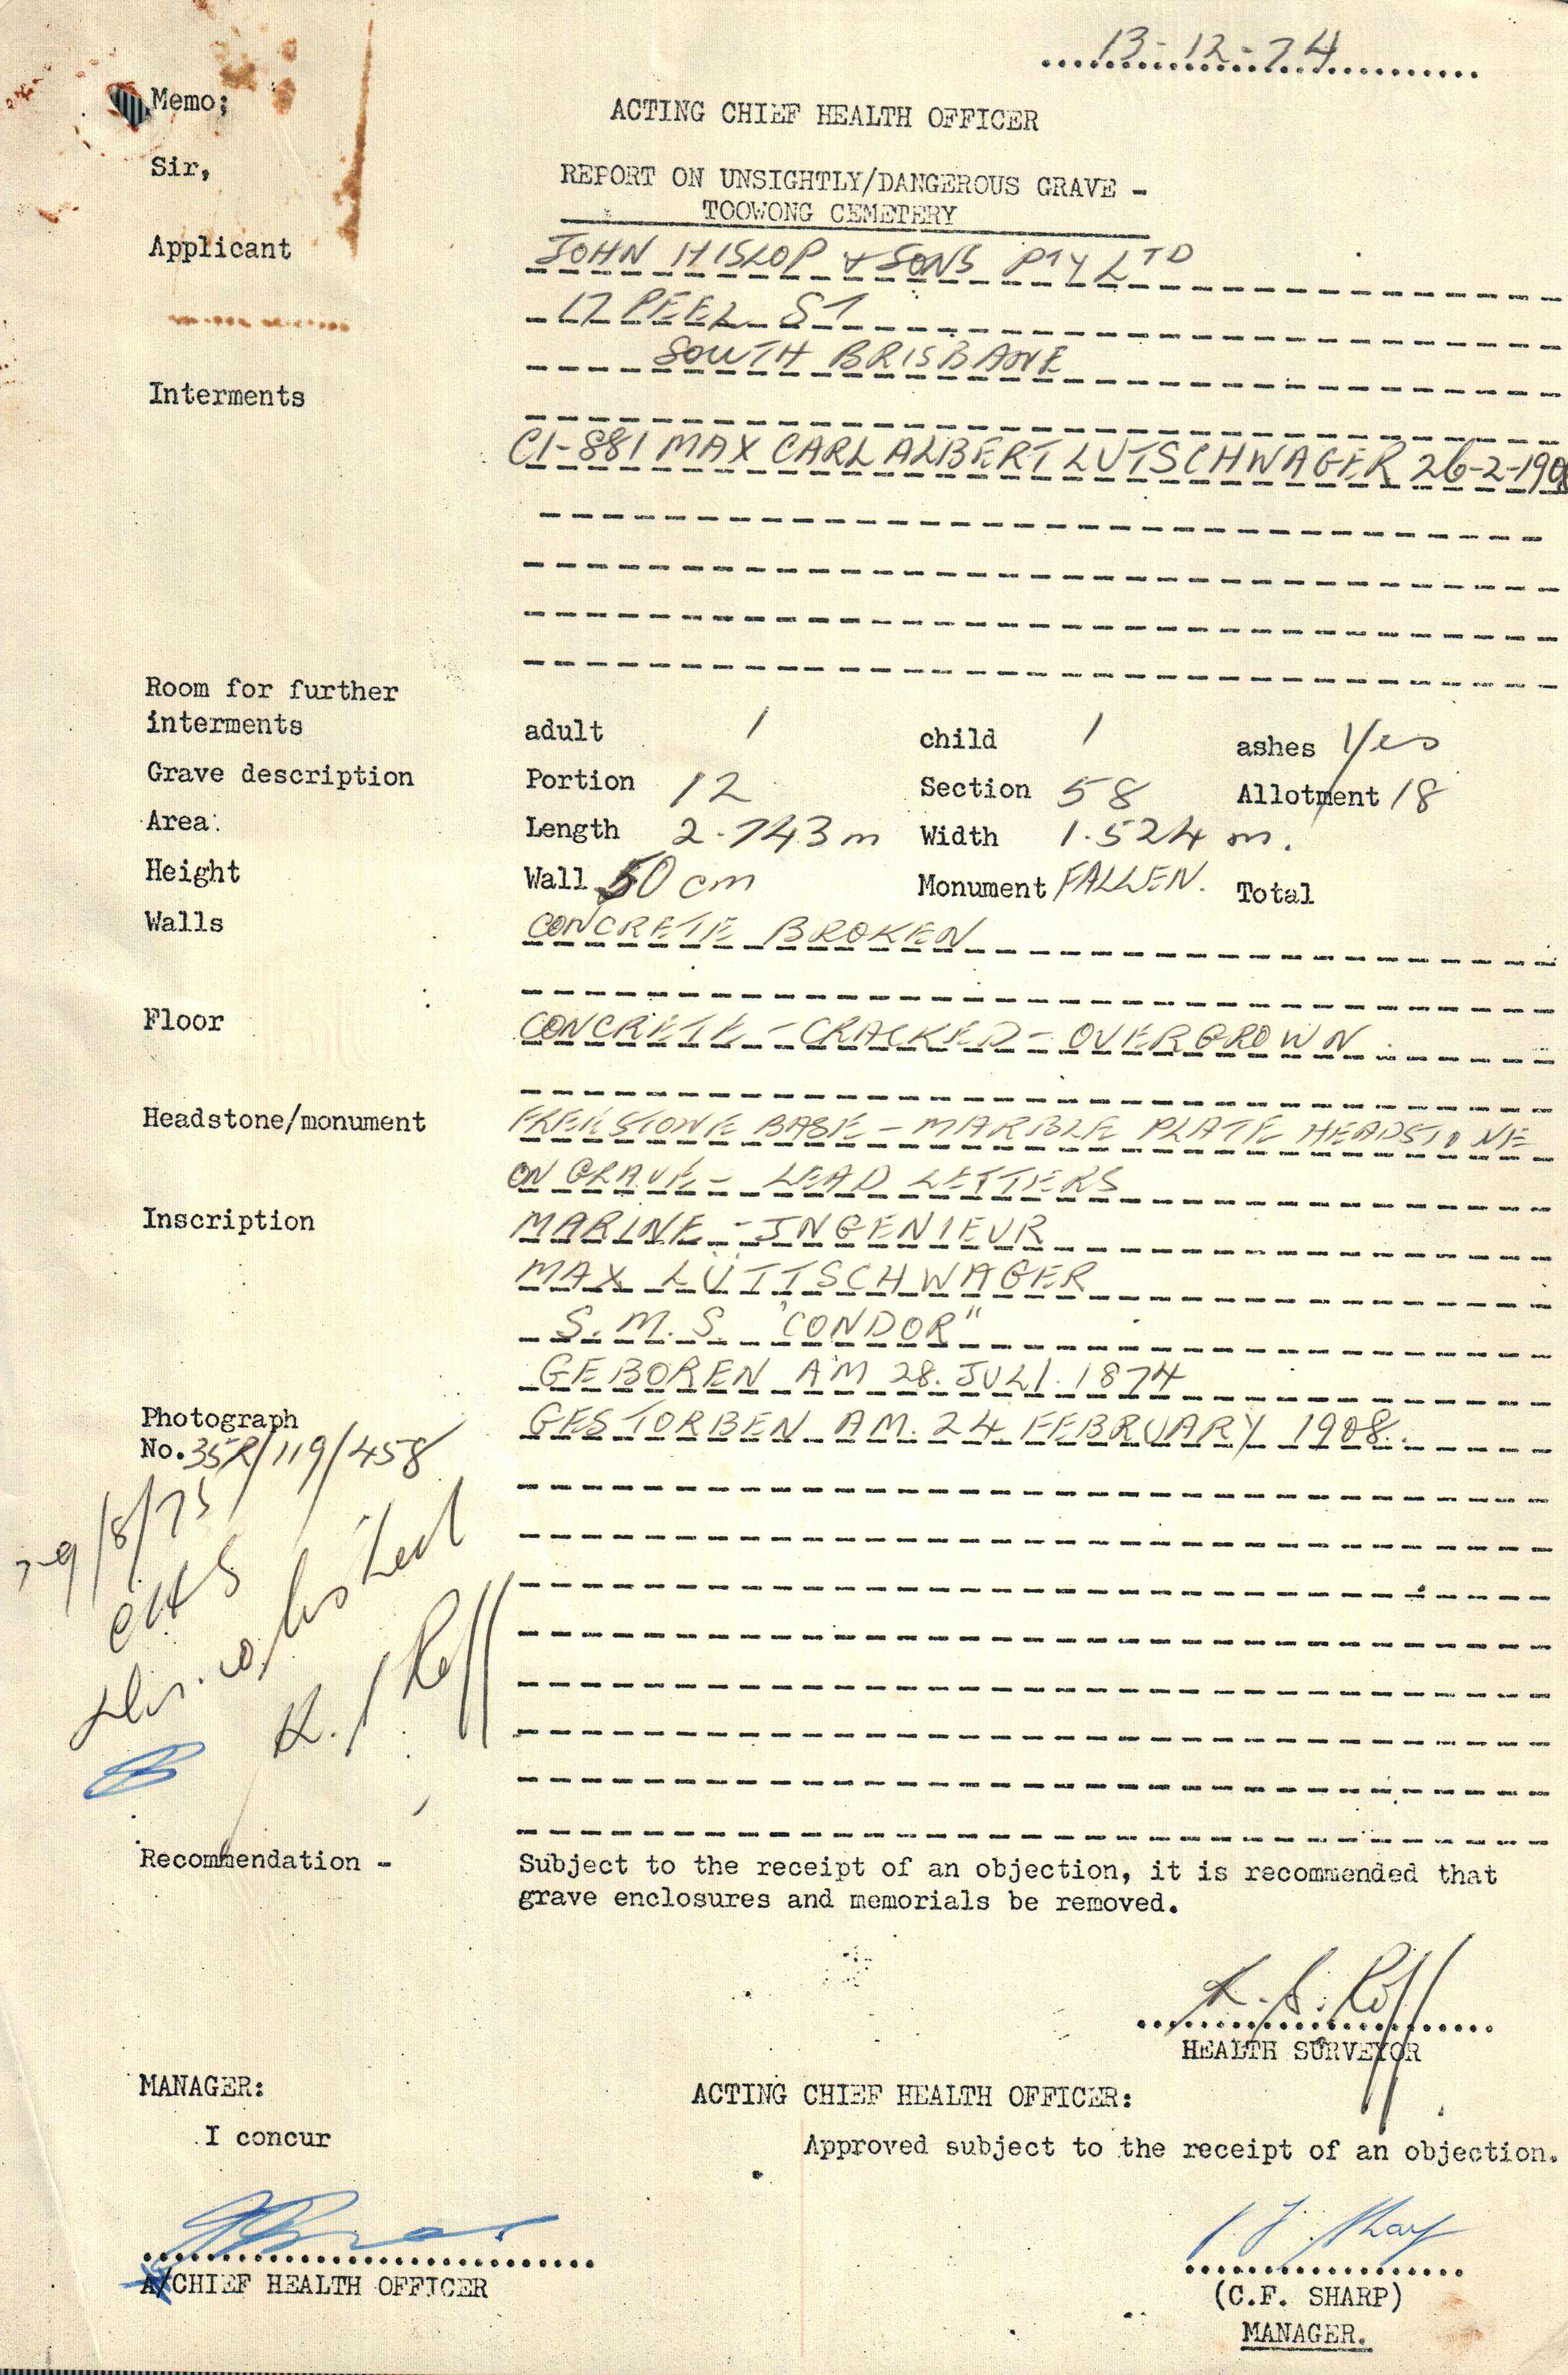 13-12-74
Memo;
ACTING CHIEF HEALTH OFFICER
Sir,
REPORT ON UNSIGHTLY/DANGEROUS GRAVE -
TOOWONG CEMETERY
Applicant JOHN HISLOP & SONS PTY LTD
17 PEEL ST
SOUTH BRISBANE
Interments
C1-881 MAX CARL ALBERT LUTSCHWAGER 26-2-1908
Room for further
interments adult 1 child 1 ashes Yes
Grave description Portion 12 Section 58 Allotment 18
Area: Length 2.743 m Width 1.524 m.
Height Wall 50 cm Monument FALLEN. Total
Walls CONCRETE BROKEN
Floor CONCRETE - CRACKED - OVERGROWN
Headstone/monument FREESTONE BASE - MARBLE PLATE HEADSTONE
ON GRAVE - LEAD LETTERS
Inscription MARINE - INGENIEUR
MAX LÜTTSCHWAGER
S.M.S. "CONDOR"
GEBOREN AM 28. JULI. 1874
Photograph GESTORBEN AM. 24 FEBRUARY 1908.
No. 35R/119/458
29/8/75
K. J Roff
Recommendation - Subject to the receipt of an objection, it is recommended that
grave enclosures and memorials be removed.
HEALTH SURVEYOR
MANAGER:
ACTING CHIEF HEALTH OFFICER:
I concur
Approved subject to the receipt of an objection.
A/CHIEF HEALTH OFFICER
(C.F. SHARP)
MANAGER.